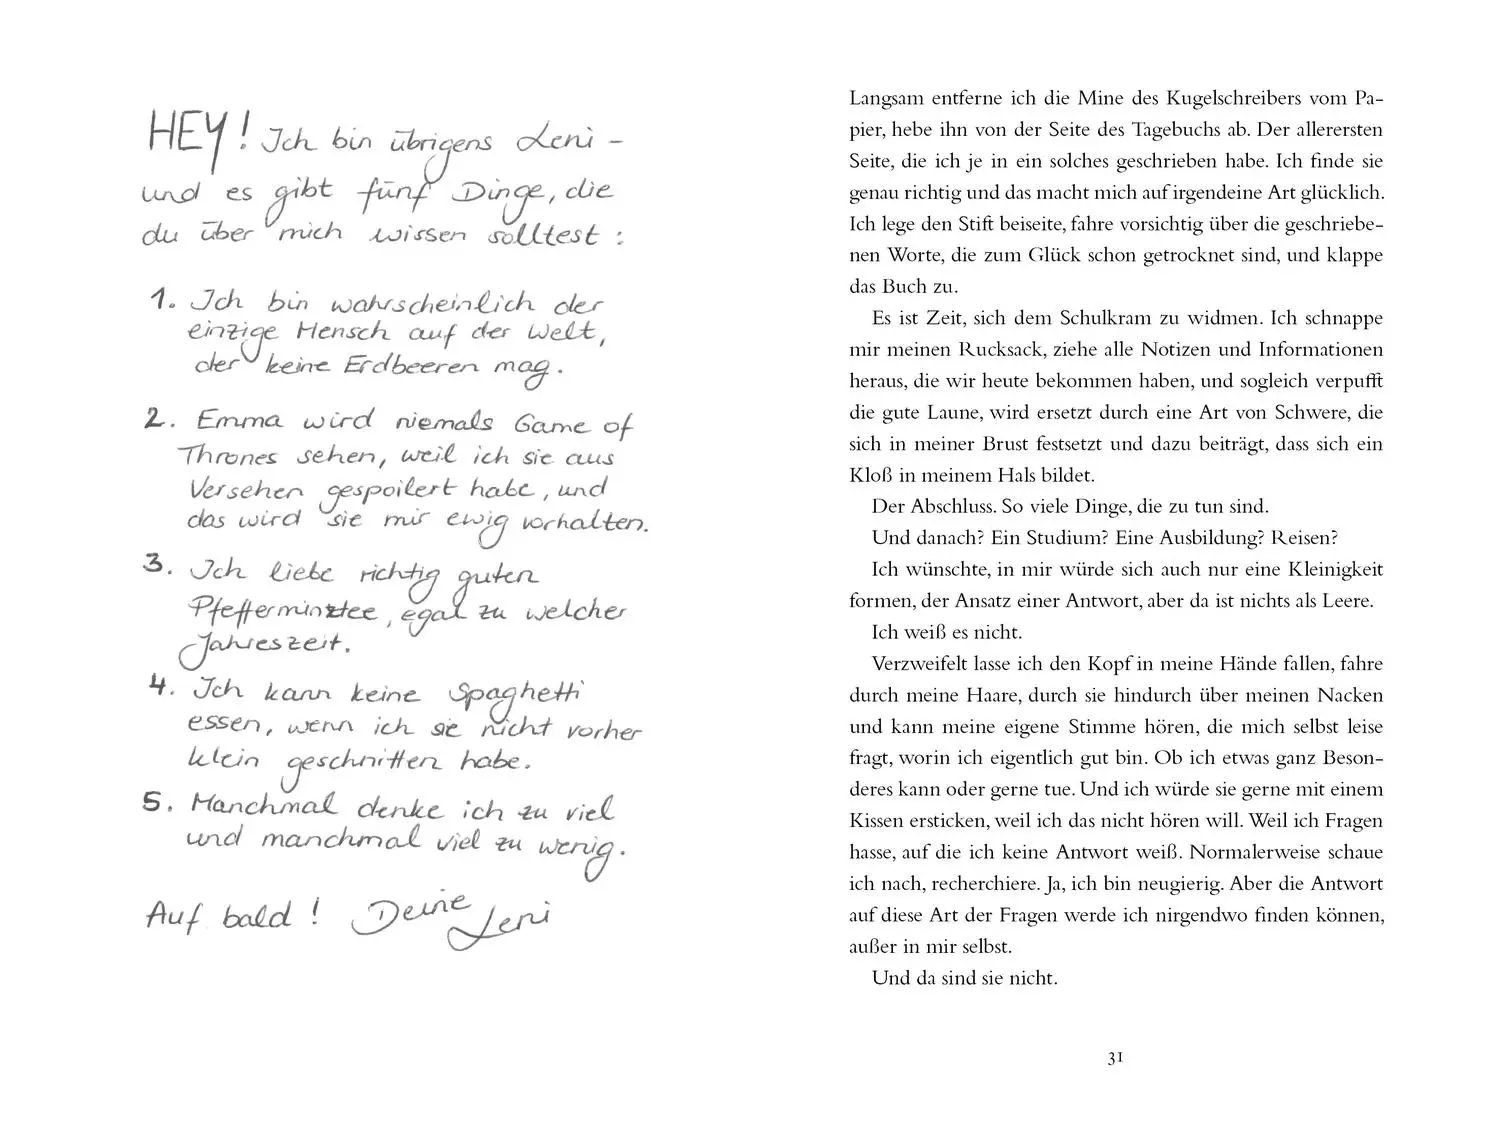 HEY! Ich bin übrigens Leni –
und es gibt fünf Dinge, die
du über mich wissen solltest:
1. Ich bin wahrscheinlich der
einzige Mensch auf der Welt,
der keine Erdbeeren mag.
2. Emma wird niemals Game of
Thrones sehen, weil ich sie aus
Versehen gespoilert habe, und
das wird sie mir ewig vorhalten.
3. Ich liebe richtig guten
Pfefferminztee, egal zu welcher
Jahreszeit.
4. Ich kann keine Spaghetti
essen, wenn ich sie nicht vorher
klein geschnitten habe.
5. Manchmal denke ich zu viel
und manchmal viel zu wenig.
Auf bald! Deine Leni
Langsam entferne ich die Mine des Kugelschreibers vom Pa-
pier, hebe ihn von der Seite des Tagebuchs ab. Der allerersten
Seite, die ich je in ein solches geschrieben habe. Ich finde sie
genau richtig und das macht mich auf irgendeine Art glücklich.
Ich lege den Stift beiseite, fahre vorsichtig über die geschriebe-
nen Worte, die zum Glück schon getrocknet sind, und klappe
das Buch zu.
Es ist Zeit, sich dem Schulkram zu widmen. Ich schnappe
mir meinen Rucksack, ziehe alle Notizen und Informationen
heraus, die wir heute bekommen haben, und sogleich verpufft
die gute Laune, wird ersetzt durch eine Art von Schwere, die
sich in meiner Brust festsetzt und dazu beiträgt, dass sich ein
Kloß in meinem Hals bildet.
Der Abschluss. So viele Dinge, die zu tun sind.
Und danach? Ein Studium? Eine Ausbildung? Reisen?
Ich wünschte, in mir würde sich auch nur eine Kleinigkeit
formen, der Ansatz einer Antwort, aber da ist nichts als Leere.
Ich weiß es nicht.
Verzweifelt lasse ich den Kopf in meine Hände fallen, fahre
durch meine Haare, durch sie hindurch über meinen Nacken
und kann meine eigene Stimme hören, die mich selbst leise
fragt, worin ich eigentlich gut bin. Ob ich etwas ganz Beson-
deres kann oder gerne tue. Und ich würde sie gerne mit einem
Kissen ersticken, weil ich das nicht hören will. Weil ich Fragen
hasse, auf die ich keine Antwort weiß. Normalerweise schaue
ich nach, recherchiere. Ja, ich bin neugierig. Aber die Antwort
auf diese Art der Fragen werde ich nirgendwo finden können,
außer in mir selbst.
Und da sind sie nicht.
31